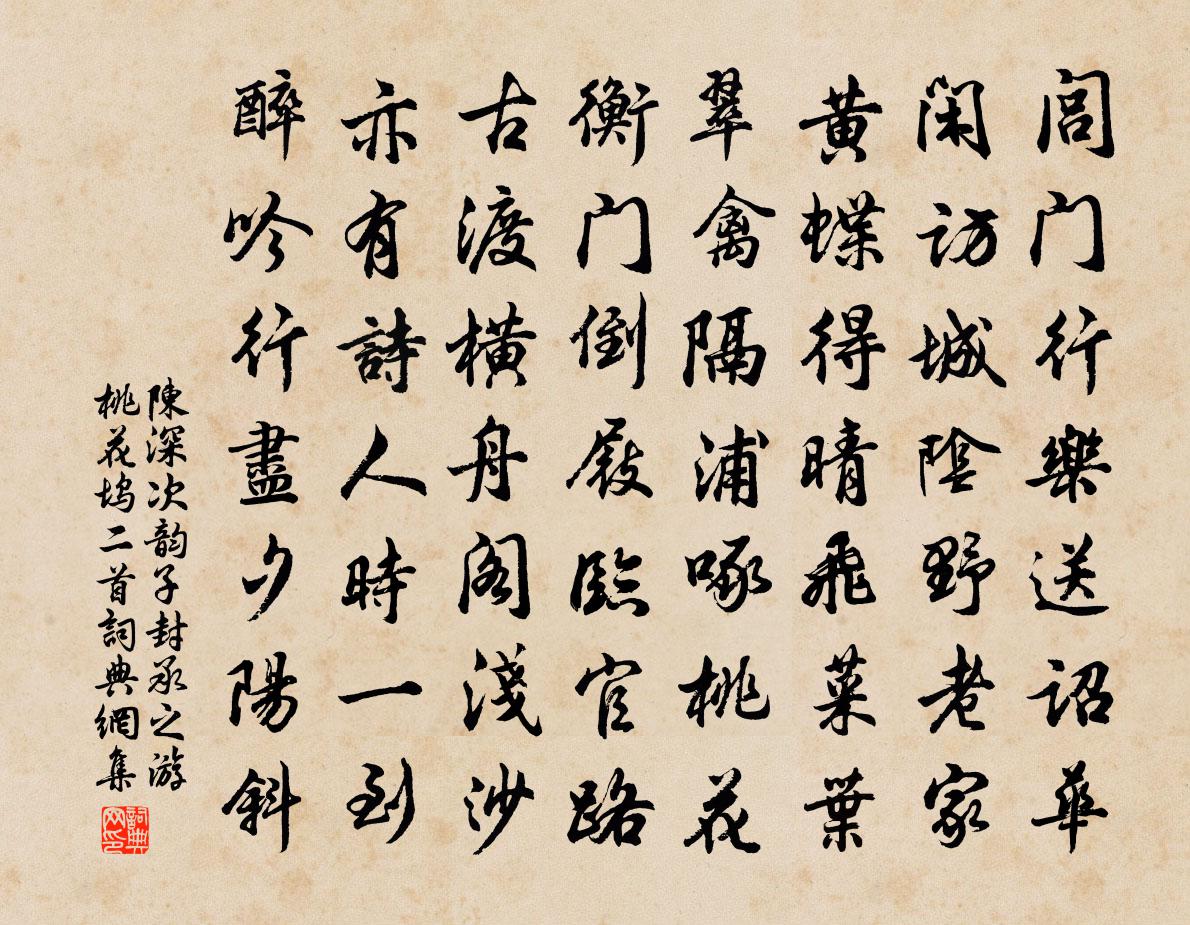 閶門行樂送詔華
閑訪城陰野老家
黃蝶得晴飛菜葉
翠禽隔浦啄桃花
衡門倒屐臨官路
古渡橫舟閣淺沙
亦有詩人時一到
醉吟行盡夕陽斜
陳深次韵子封承之游
桃花塢二首詞典網集
詞典
网印